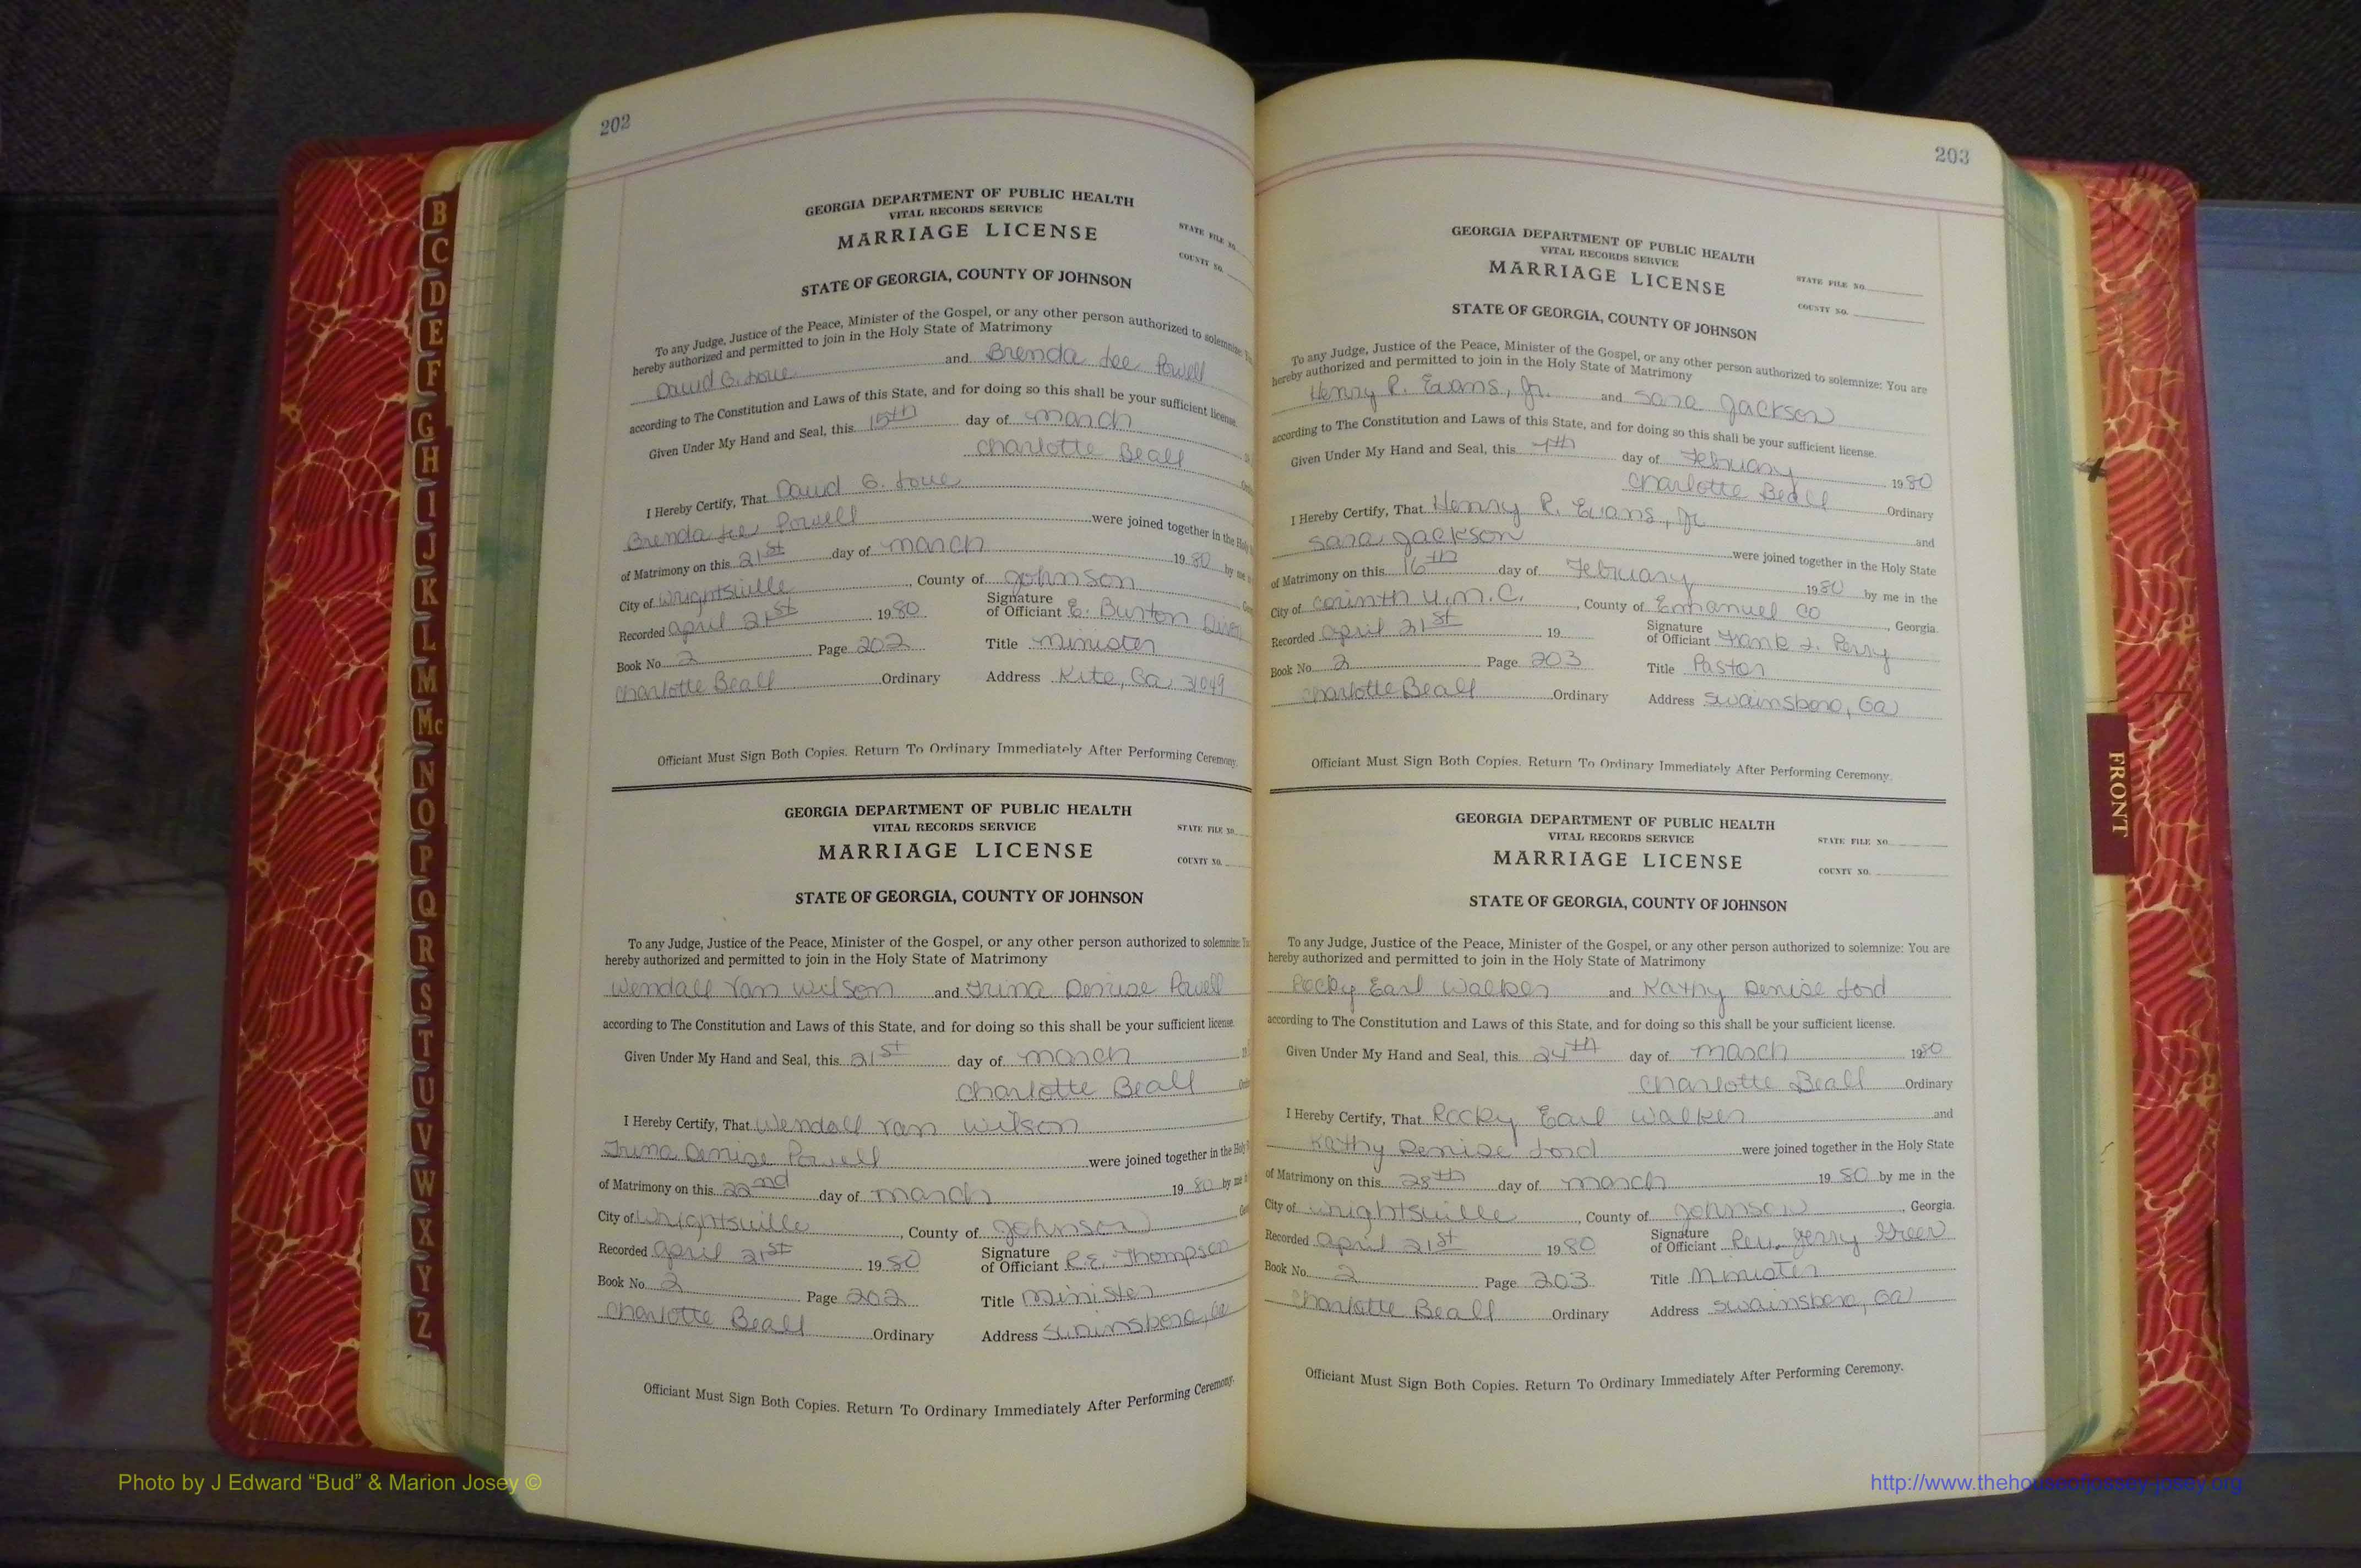 202
GEORGIA DEPARTMENT OF PUBLIC HEALTH
VITAL RECORDS SERVICE
MARRIAGE LICENSE
STATE FILE NO.
COUNTY NO.
STATE OF GEORGIA, COUNTY OF JOHNSON
To any Judge, Justice of the Peace, Minister of the Gospel, or any other person authorized to solemnize:
hereby authorized and permitted to join in the Holy State of Matrimony
David G. Love and Brenda Lee Powell
according to The Constitution and Laws of this State, and for doing so this shall be your sufficient license.
Given Under My Hand and Seal, this 15th day of March
Charlotte Beall
I Hereby Certify, That David G. Love
Brenda Lee Powell were joined together in the Holy
of Matrimony on this 21st day of March 1980 by me
City of Wrightsville, County of Johnson
Recorded April 21st 1980 Signature of Officiant E. Burton
Book No. 2 Page 202 Title Minister
Charlotte Beall Ordinary Address Kite, Ga 31049
Officiant Must Sign Both Copies. Return To Ordinary Immediately After Performing Ceremony.
GEORGIA DEPARTMENT OF PUBLIC HEALTH
VITAL RECORDS SERVICE
MARRIAGE LICENSE
STATE FILE NO.
COUNTY NO.
STATE OF GEORGIA, COUNTY OF JOHNSON
To any Judge, Justice of the Peace, Minister of the Gospel, or any other person authorized to solemnize:
hereby authorized and permitted to join in the Holy State of Matrimony
Wendall Van Wilson and Trina Denise Powell
according to The Constitution and Laws of this State, and for doing so this shall be your sufficient license.
Given Under My Hand and Seal, this 21st day of March
Charlotte Beall
I Hereby Certify, That Wendall Van Wilson
Trina Denise Powell were joined together in the Holy
of Matrimony on this 22nd day of March 1980 by me
City of Wrightsville, County of Johnson
Recorded April 21st 1980 Signature of Officiant R.E. Thompson
Book No. 2 Page 202 Title Minister
Charlotte Beall Ordinary Address
Officiant Must Sign Both Copies. Return To Ordinary Immediately After Performing Ceremony.
203
GEORGIA DEPARTMENT OF PUBLIC HEALTH
VITAL RECORDS SERVICE
MARRIAGE LICENSE
STATE FILE NO.
COUNTY NO.
STATE OF GEORGIA, COUNTY OF JOHNSON
To any Judge, Justice of the Peace, Minister of the Gospel, or any other person authorized to solemnize: You are
hereby authorized and permitted to join in the Holy State of Matrimony
Henry R. Evans, Jr. and Sara Jackson
according to The Constitution and Laws of this State, and for doing so this shall be your sufficient license.
Given Under My Hand and Seal, this day of February 1980
Charlotte Beall Ordinary
I Hereby Certify, That Henry R. Evans, Jr and
Sara Jackson were joined together in the Holy State
of Matrimony on this 16th day of February 1980 by me in the
City of Corinth U.M.C., County of Emanuel Co, Georgia.
Recorded April 21st 19 Signature of Officiant Frank L. Perry
Book No. 2 Page 203 Title Pastor
Charlotte Beall Ordinary Address Swainsboro, Ga
Officiant Must Sign Both Copies. Return To Ordinary Immediately After Performing Ceremony.
GEORGIA DEPARTMENT OF PUBLIC HEALTH
VITAL RECORDS SERVICE
MARRIAGE LICENSE
STATE FILE NO.
COUNTY NO.
STATE OF GEORGIA, COUNTY OF JOHNSON
To any Judge, Justice of the Peace, Minister of the Gospel, or any other person authorized to solemnize: You are
hereby authorized and permitted to join in the Holy State of Matrimony
Rocky Earl Walker and Kathy Denise Lord
according to The Constitution and Laws of this State, and for doing so this shall be your sufficient license.
Given Under My Hand and Seal, this 24th day of March 1980
Charlotte Beall Ordinary
I Hereby Certify, That Rocky Earl Walker and
Kathy Denise Lord were joined together in the Holy State
of Matrimony on this 28th day of March 1980 by me in the
City of Wrightsville, County of Johnson, Georgia.
Recorded April 21st 1980 Signature of Officiant Rev. Jerry Greer
Book No. 2 Page 203 Title Minister
Charlotte Beall Ordinary Address Swainsboro, Ga
Officiant Must Sign Both Copies. Return To Ordinary Immediately After Performing Ceremony.
B
C
D
E
F
G
H
I
J
K
L
M
Mc
N
O
P
Q
R
S
T
U
V
W
X
Y
Z
FRONT
Photo by J Edward “Bud” & Marion Josey ©
http://www.thehouseofjossey-josey.org